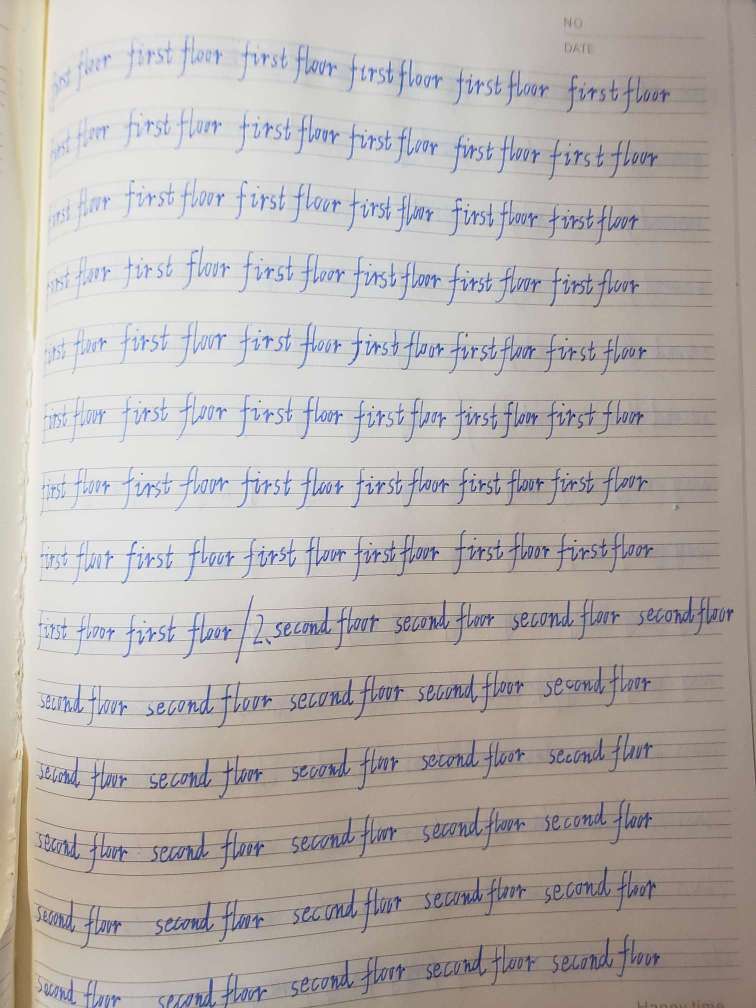 NO
DATE
first floor first floor first floor first floor first floor first floor
first floor first floor first floor first floor first floor first floor
first floor first floor first floor first floor first floor first floor
first floor first floor first floor first floor first floor first floor
first floor first floor first floor first floor first floor first floor
first floor first floor first floor first floor first floor first floor
first floor first floor first floor first floor first floor first floor
first floor first floor first floor first floor first floor first floor
first floor first floor / 2、second floor second floor second floor second floor
second floor second floor second floor second floor second floor
second floor second floor second floor second floor second floor
second floor second floor second floor second floor second floor
second floor second floor second floor second floor second floor
second floor second floor second floor second floor second floor
Happy time